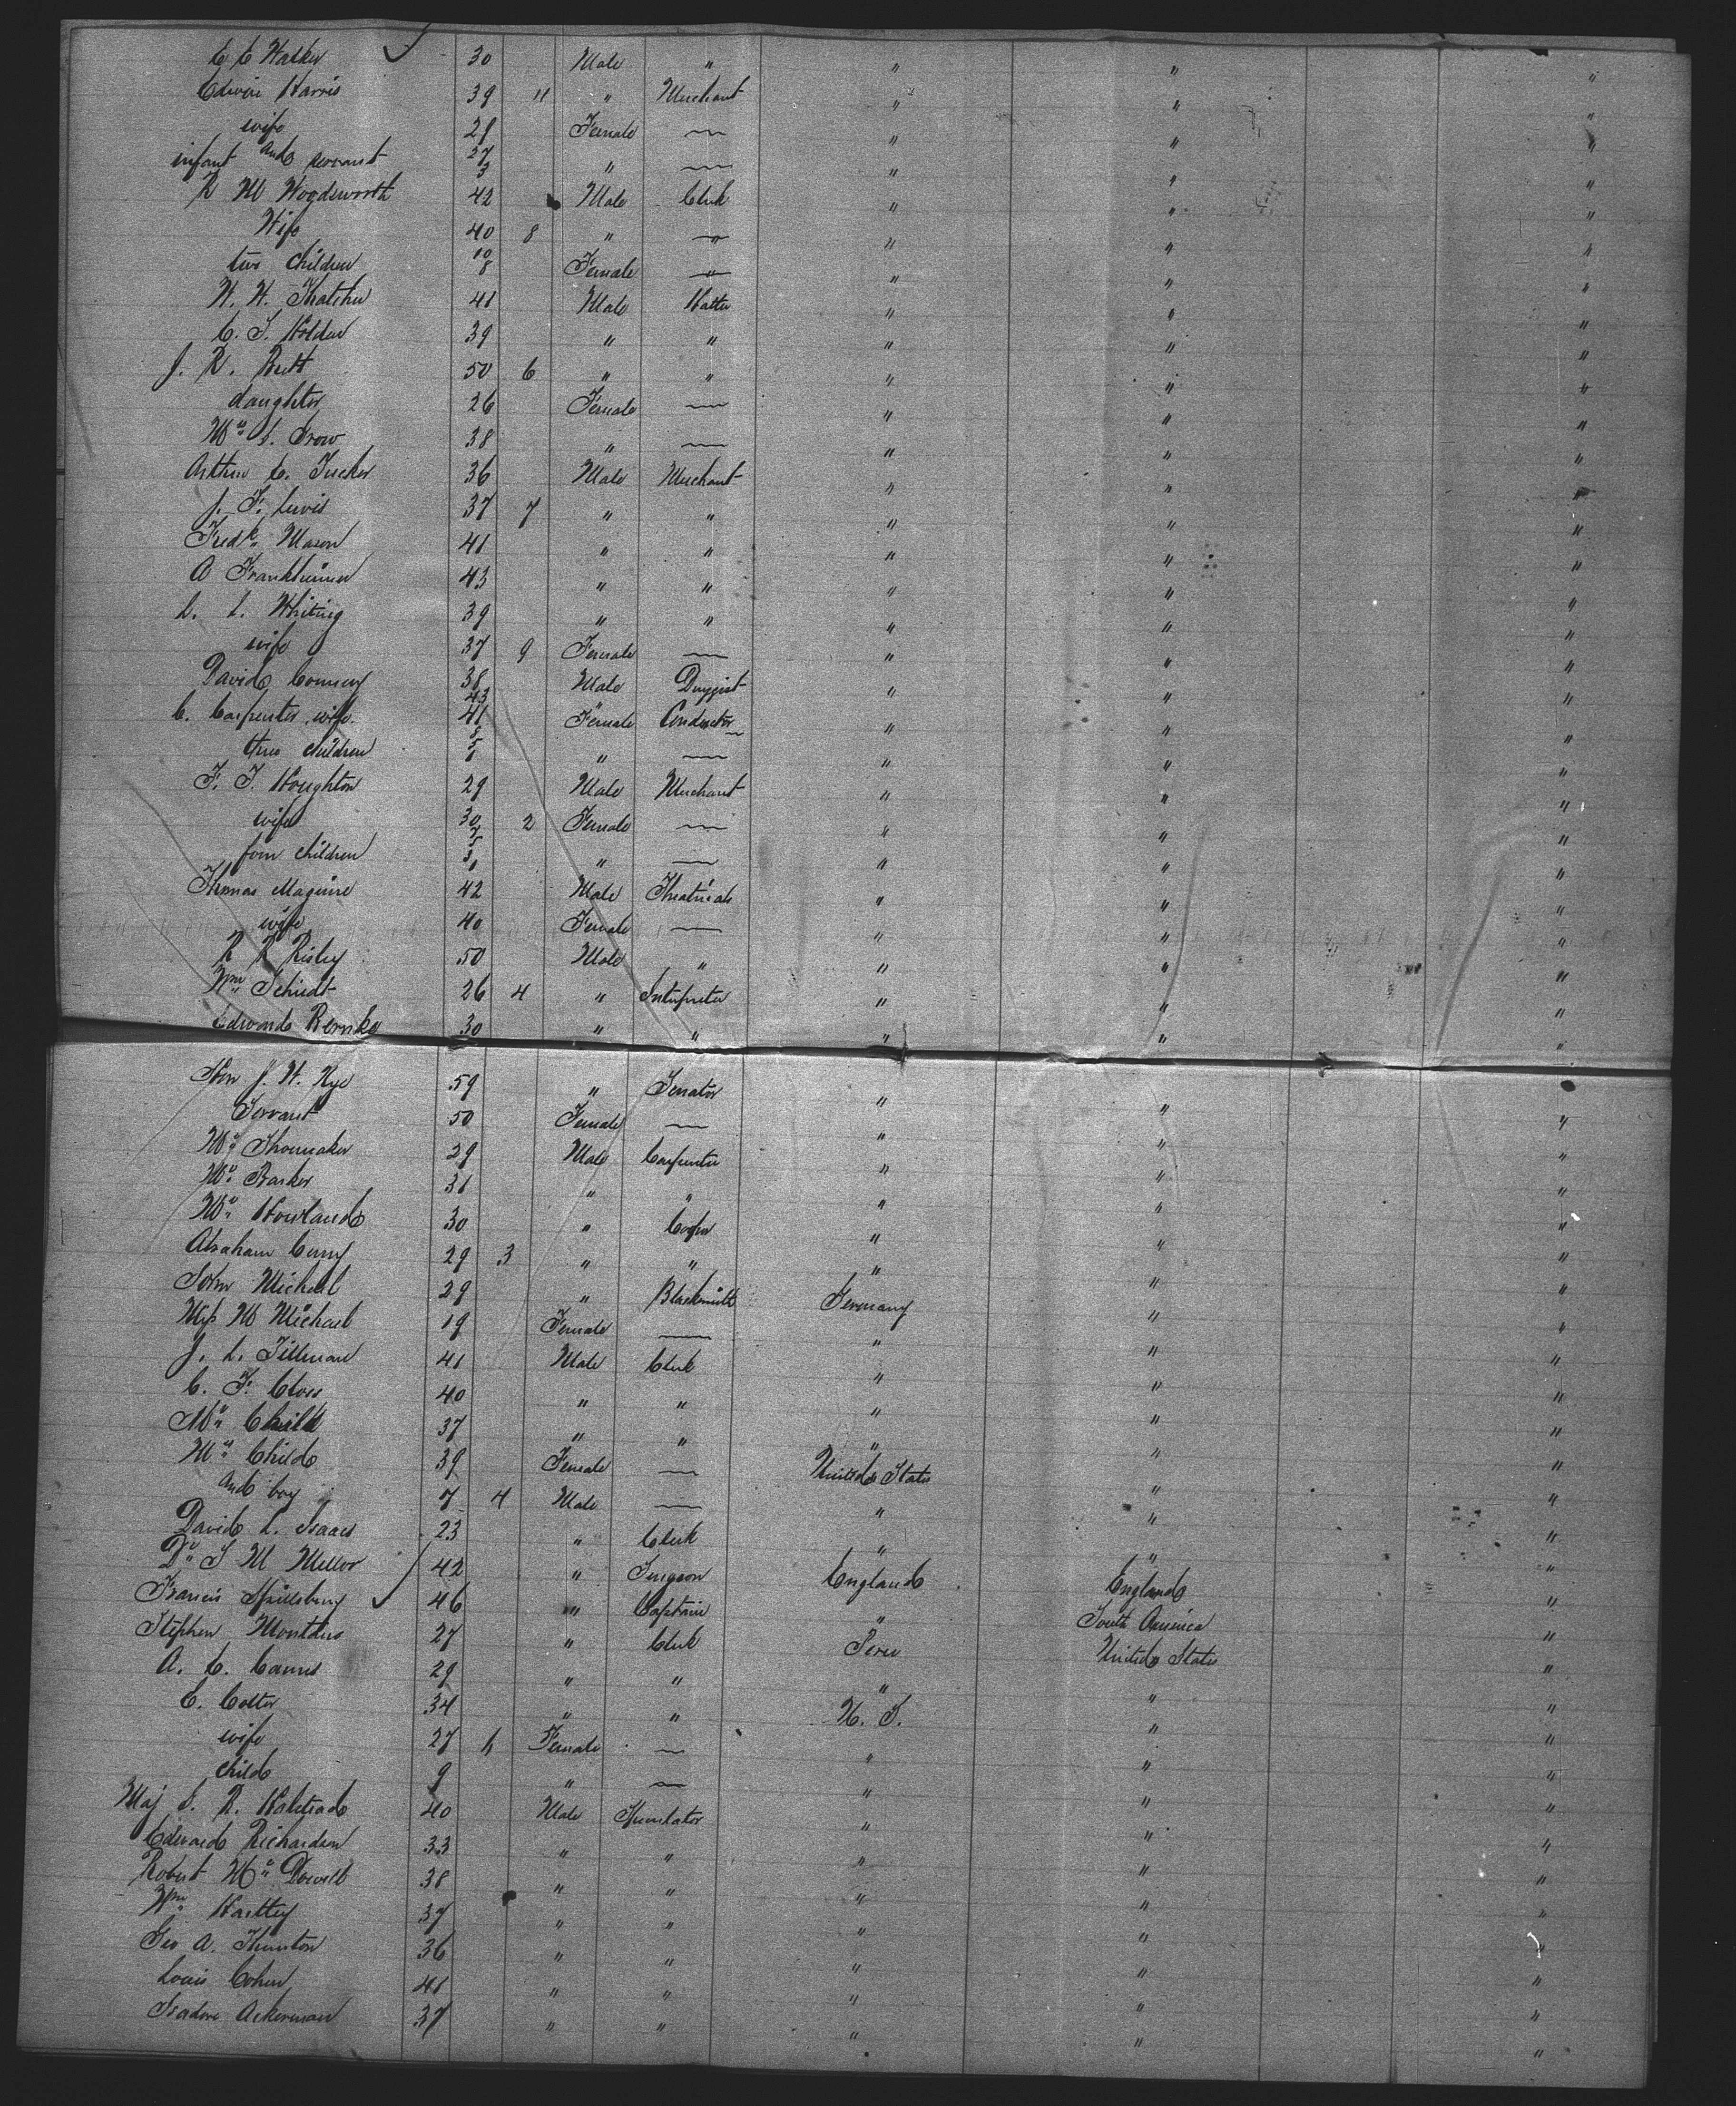 E C Walker 30 Male " " " "
Edwin Harris 39 11 " Merchant " " "
wife 28 Female — " " "
infant and servant 27 3 " — " " "
R M Wordsworth 42 Male Clerk " " "
Wife 40 8 " — " " "
two children 10 8 Female — " " "
W. W. Thatcher 41 Male Hatter " " "
C. S. Holden 39 " " " " "
J. R. Britt 50 6 " " " " "
daughter 26 Female — " " "
38 " — " " "
Arthur C. Tucker 36 Male Merchant " " "
J. F. Lewis 37 7 " " " " "
Fredk. Mason 41 " " " " "
A Frankheimer 43 " " " " "
L. L. Whiting 39 " " " " "
wife 37 9 Female — " " "
David Conney 38 Male Druggist " " "
C. Carpenter wife 43 41 " Female Conductor — " " "
three children 8 5 1 " — " " "
F. T. Houghton 29 Male Merchant " " "
wife 30 2 Female — " " "
four children 7 5 3 1 " — " " "
Thomas Maguire 42 Male Theatricals " " "
wife 40 Female — " " "
R R Risley 50 Male " " " "
Wm Schiedt 26 4 " Interpreter " " "
Edward Bernke 30 " " " " "
Hon J. W. Nye 59 " Senator " " "
Servant 50 Female — " " "
Mr. Shomaker 29 Male Carpenter " " "
Mr. Barker 31 " " " " "
Mr. Howland 30 " Cooper " " "
Abraham Curry 29 3 " " " " "
John Michael 29 " Blacksmith Germany " "
Miss M Michael 19 Female — " " "
J. L. Tillman 41 Male Clerk " " "
C. F. Closs 40 " " " " "
Mr. Child 37 " " " " "
Mrs. Child 39 Female — United States " "
and boy 7 4 Male — " " "
David L. Isaacs 23 " Clerk " " "
Dr. J M Mellor 42 " Surgeon England England "
Francis Spillsbury 46 " Captain " South America "
Stephen Montaus 27 " Clerk Peru United States "
A. C. 29 " " " " "
C. Colter 34 " " U. S. " "
wife 27 6 Female — " " "
child 9 " — " " "
Maj S. R. Halstead 40 Male Speculator " " "
Edward Richardson 33 " " " " "
Robert McDowell 38 " " " " "
Wm. Hartley 37 " " " " "
Geo A. Thurston 36 " " " " "
Louis Cohen 41 " " " " "
Isadore Ackerman 37 " " " " "